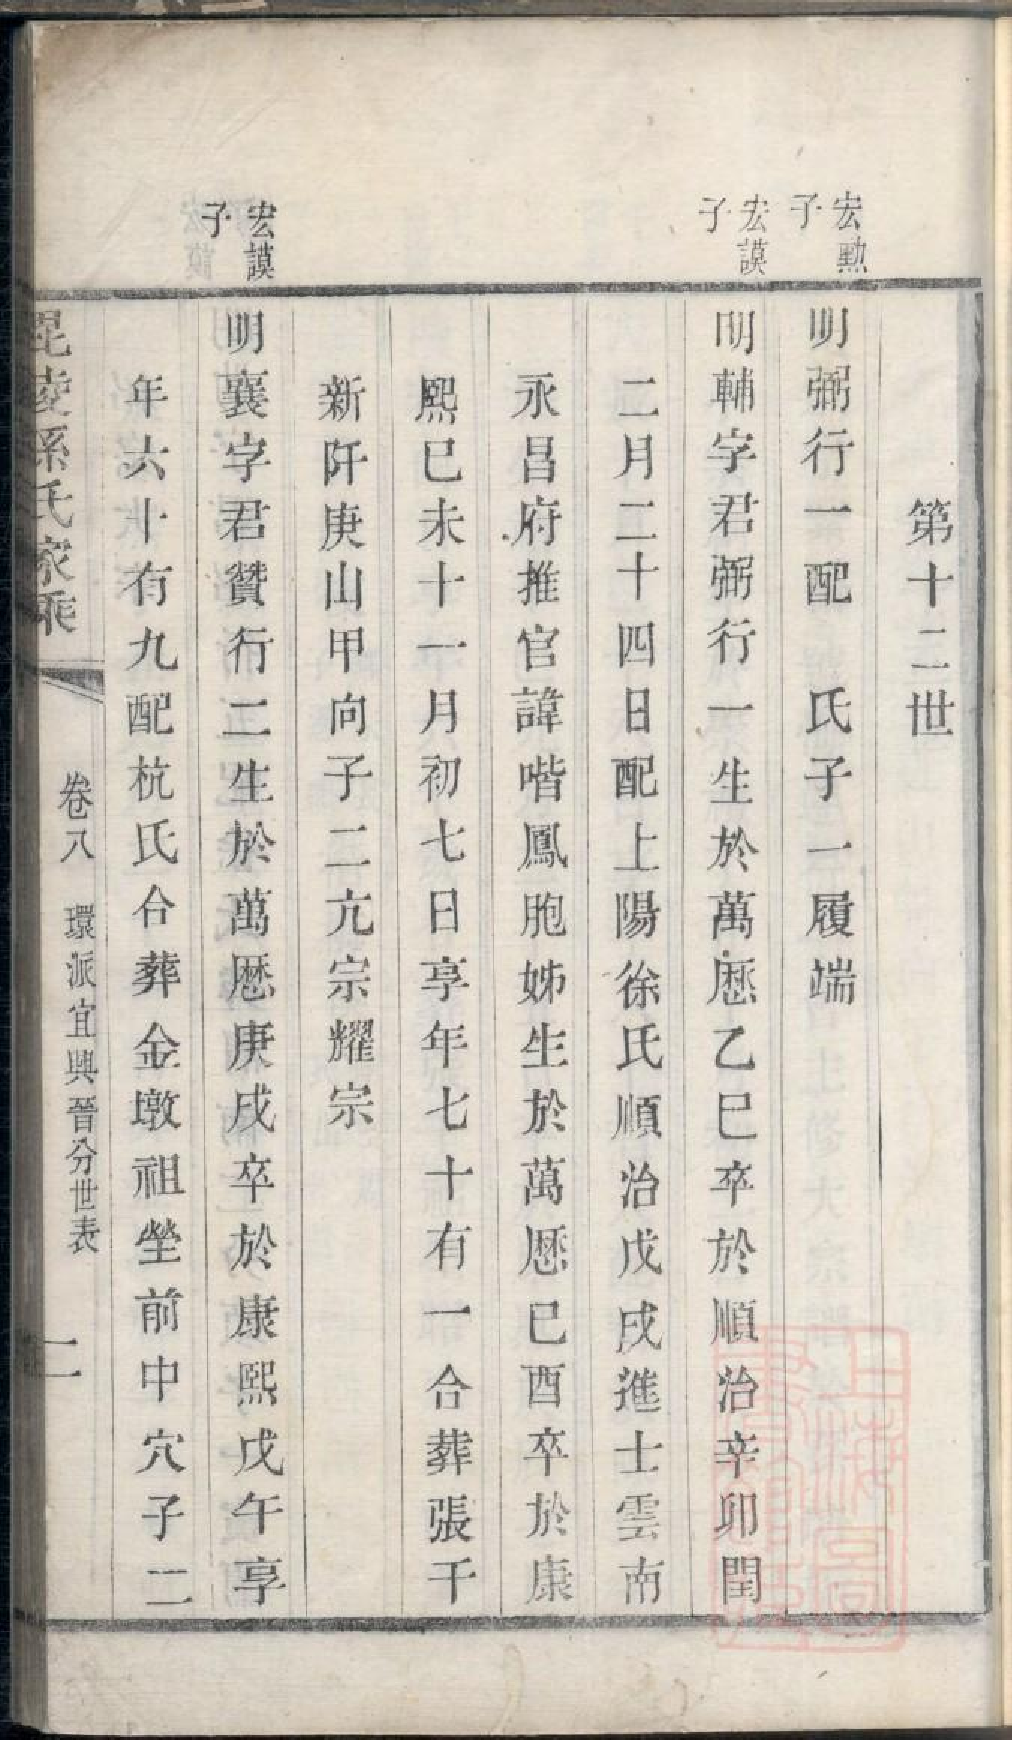 第十二世
宏勲子
明弼行一配　氏子一履端
宏謨子
明輔字君弼行一生於萬厯乙巳卒於順治辛卯閏
二月二十四日配上陽徐氏順治戊戌進士雲南
永昌府推官諱喈鳳胞姊生於萬厯己酉卒於康
熙已未十一月初七日享年七十有一合葬張千
新阡庚山甲向子二亢宗耀宗
宏謨子
明襄字君贊行二生於萬厯庚戌卒於康熙戊午享
年六十有九配杭氏合葬金墩祖塋前中穴子二
毘陵孫氏家乘
卷八　環派宜興晉分世表
二